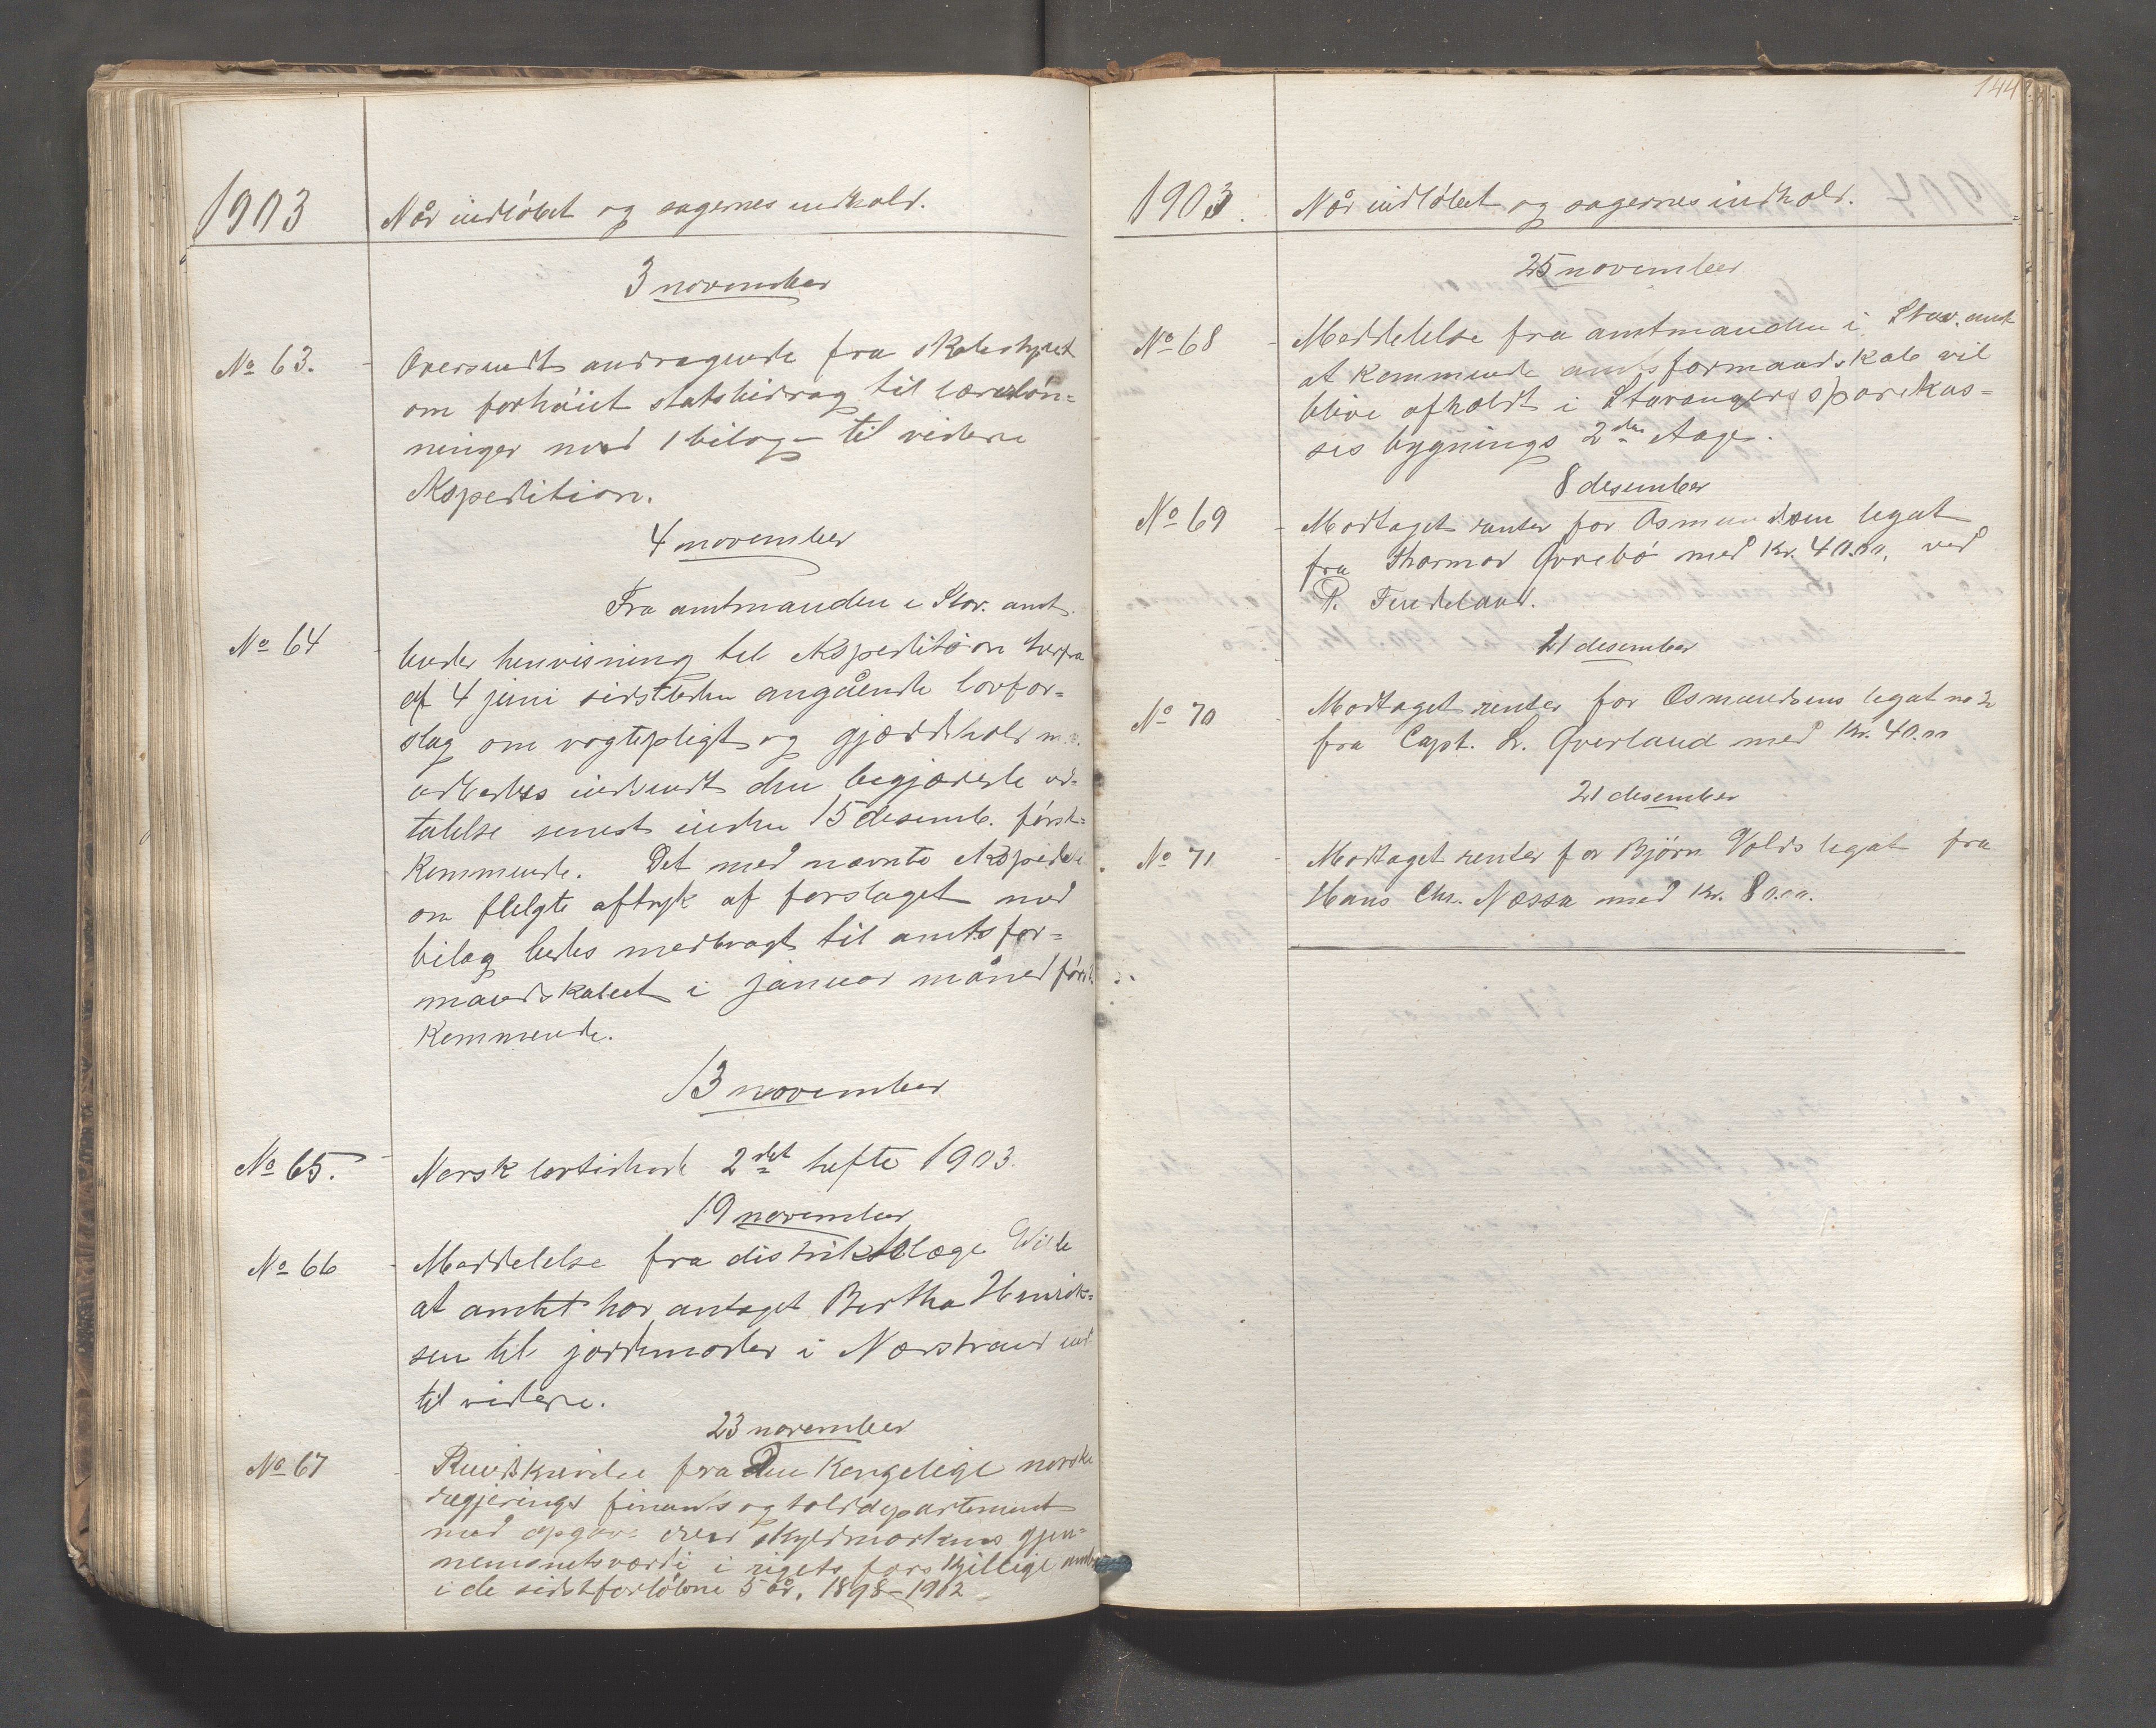 1903
Når indløbet og sagernes indhold.
3 november
No 63.
Oversendt andragende fra skolestyret
om forhøiet statsbidrag til lærerløn=
ninger med 1 bilag – til videre
ekspedition.
4 november
Fra amtmanden i Stav. amt.
No 64
Under henvisning til ekspedition herfra
af 4 juni sidstleden angående lovfor=
slag om vogtepligt og gjærdehold m.v.
udbedes indsendt den begjærede ud=
talelse senest inden 15 desemb. først=
kommende. Det med nævnte ekspediti
on fulgte aftryk af forslaget med
bilag bedes medbragt til amtsfor=
mandskabet i januar måned først
kommende.
13 november
No 65.
Norsk lovtidende 2det hefte 1903.
19 november
No 66
Meddelelse fra distriktslæge Wille
at amtet har antaget Bertha Henrik=
sen til jordemoder i Nærstrand ind
til videre.
23 november
No 67
Rundskrivelse fra Den Kongelige norske
regjerings finants og tolddepartement
med opgave over skyldmarkens gjen=
nemsnitsværdi i rigets forskjellige amter
i de sidstforløbne 5 år, 1898–1902.
144
1903.
Når indløbet og sagernes indhold.
25 november
No 68
Meddelelse fra amtmanden i Stav. amt
at kommende amtsformandskab vil
blive afholdt i Stavangers sparekas=
ses bygnings 2den etage.
8 desember
No 69
Modtaget renter for Osmundsen legat
fra Thormod Øvrebø med Kr. 40.00, ved
P. Tindeland.
21 desember
No 70
Modtaget renter for Osmundsens legat no 2
fra Capt. L. Qverland med Kr. 40.00
21 desember
No 71
Modtaget renter for Bjørn Volds legat fra
Hans Chr. Næssa med Kr. 80.00.